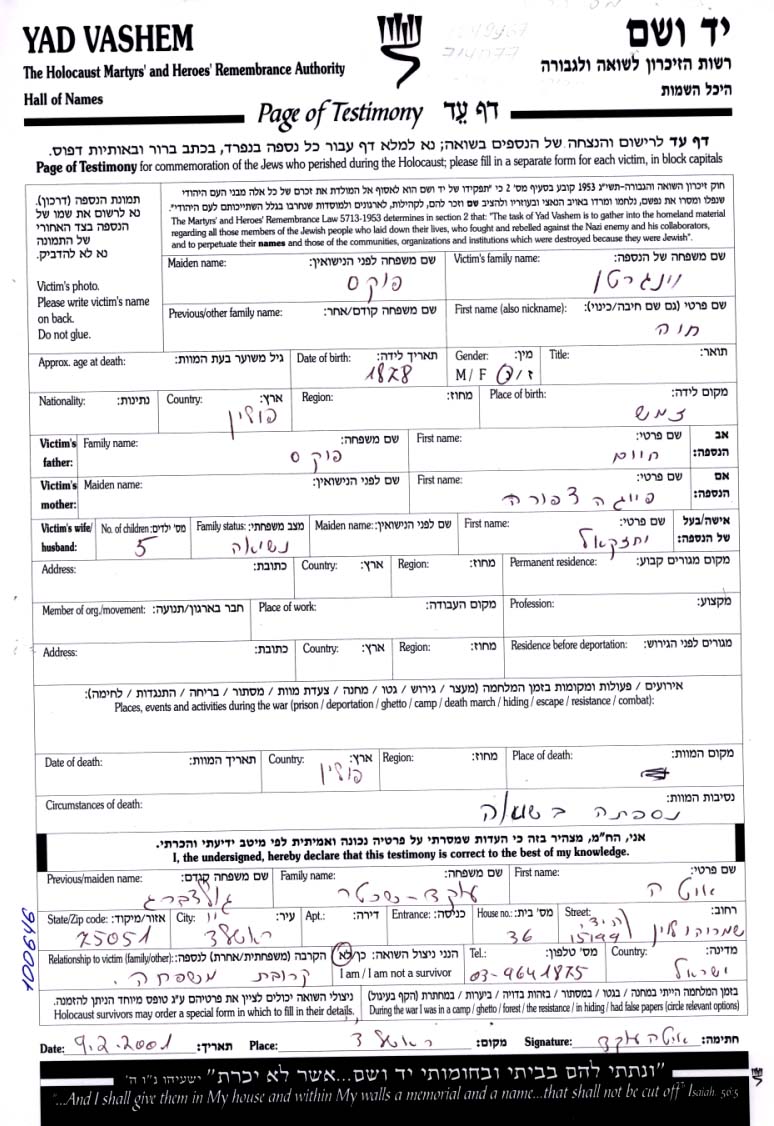 YAD VASHEM
יד ושם
The Holocaust Martyrs' and Heroes' Remembrance Authority
רשות הזיכרון לשואה ולגבורה
Hall of Names
היכל השמות
Page of Testimony דף עֵד
דף עד לרישום והנצחה של הנספים בשואה; נא למלא דף עבור כל נספה בנפרד, בכתב ברור ובאותיות דפוס.
Page of Testimony for commemoration of the Jews who perished during the Holocaust; please fill in a separate form for each victim, in block capitals
תמונת הנספה (דרכון).
נא לרשום את שמו של
הנספה בצד האחורי
של התמונה
נא לא להדביק.
Victim's photo.
Please write victim's name
on back.
Do not glue.
חוק זיכרון השואה והגבורה-תשי"ג 1953 קובע בסעיף מס' 2 כי "תפקידו של יד ושם הוא לאסוף אל המולדת את זכרם של כל אלה מבני העם היהודי
שנפלו ומסרו את נפשם, נלחמו ומרדו באויב הנאצי ובעוזריו ולהציב שם וזכר להם, לקהילות, לארגונים ולמוסדות שנחרבו בגלל השתייכותם לעם היהודי".
The Martyrs' and Heroes' Remembrance Law 5713-1953 determines in section 2 that: "The task of Yad Vashem is to gather into the homeland material
regarding all those members of the Jewish people who laid down their lives, who fought and rebelled against the Nazi enemy and his collaborators,
and to perpetuate their names and those of the communities, organizations and institutions which were destroyed because they were Jewish".
Victim's family name: שם משפחה של הנספה: וינגרטן
Maiden name: שם משפחה לפני הנישואין: פוקס
First name (also nickname): שם פרטי (גם שם חיבה/כינוי): חוה
Previous/other family name: שם משפחה קודם/אחר:
Title: תואר:
Gender: מין: M / F ז / נ
Date of birth: תאריך לידה: 1878
Approx. age at death: גיל משוער בעת המוות:
Place of birth: מקום לידה:
Region: מחוז:
Country: ארץ: פולין
Nationality: נתינות:
Victim's father: אב הנספה: First name: שם פרטי: חיים
Family name: שם משפחה: פוקס
Victim's mother: אם הנספה: First name: שם פרטי: פייגה צפורה
Maiden name: שם לפני הנישואין:
Victim's wife/ husband: אישה/בעל של הנספה: First name: שם פרטי: יחזקאל
Maiden name: שם לפני הנישואין:
Family status: מצב משפחתי: נשואה
No. of children: מס' ילדים: 5
Permanent residence: מקום מגורים קבוע:
Region: מחוז: Country: ארץ: Address: כתובת:
Profession: מקצוע:
Place of work: מקום העבודה:
Member of org./movement: חבר בארגון/תנועה:
Residence before deportation: מגורים לפני הגירוש:
Region: מחוז: Country: ארץ: Address: כתובת:
אירועים / פעולות ומקומות בזמן המלחמה (מעצר / גירוש / גטו / מחנה / צעדת מוות / מסתור / בריחה / התנגדות / לחימה):
Places, events and activities during the war (prison / deportation / ghetto / camp / death march / hiding / escape / resistance / combat):
Place of death: מקום המוות:
Region: מחוז: Country: ארץ: פולין
Date of death: תאריך המוות:
Circumstances of death: נסיבות המוות: נספתה בשואה
אני, הח"מ, מצהיר בזה כי העדות שמסרתי על פרטיה נכונה ואמיתית לפי מיטב ידיעתי והכרתי.
I, the undersigned, hereby declare that this testimony is correct to the best of my knowledge.
First name: שם פרטי: איטה
Family name: שם משפחה:
Previous/maiden name: שם משפחה קודם: גולדברג
Street: רחוב:
House no.: מס' בית: 36
Entrance: כניסה: Apt.: דירה:
City: עיר:
State/Zip code: אזור/מיקוד: 75051
Country: מדינה: ישראל
Tel.: מס' טלפון: 03-9641875
I am / I am not a survivor הנני ניצול השואה: כן/לא
Relationship to victim (family/other): הקרבה (משפחתית/אחרת) לנספה: קרובת משפחה.
בזמן המלחמה הייתי במחנה / בגטו / במסתור / בזהות בדויה / ביערות / במחתרת (הקף בעיגול)
During the war I was in a camp / ghetto / forest / the resistance / in hiding / had false papers (circle relevant options)
ניצולי השואה יכולים לציין את פרטיהם ע"ג טופס מיוחד הניתן להזמנה.
Holocaust survivors may order a special form in which to fill in their details.
Date: 9.2.2001 תאריך: Place: מקום: Signature: חתימה: איטה
100646
"ונתתי להם בביתי ובחומותי יד ושם...אשר לא יכרת" ישעיהו נ"ו ה'
"...And I shall give them in My house and within My walls a memorial and a name...that shall not be cut off" Isaiah. 56:5